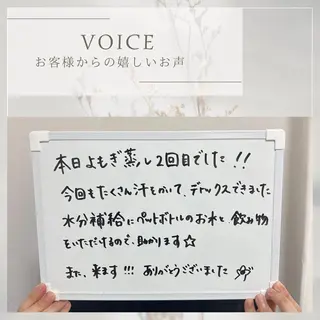 VOICE
お客様からの嬉しいお声
本日よもぎ蒸し2回目でした!!
今回もたくさん汗をかいて、デトックスできました
水分補給にペットボトルのお水と飲み物
をいただけるので、助かります☆
また、来ます!!! ありがとうございました